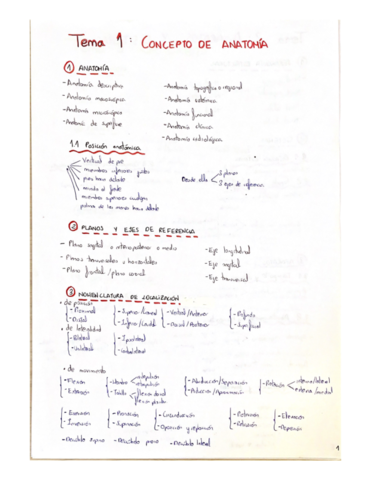 Tema 1: CONCEPTO DE ANATOMÍA
① ANATOMÍA
- Anatomía descriptiva
- Anatomía microscópica
- Anatomía macroscópica
- Anatomía de superficie
- Anatomía topográfica o regional
- Anatomía sistémica
- Anatomía funcional
- Anatomía clínica
- Anatomía radiológica
1.1 Posición anatómica
Vertical de pie
miembros inferiores juntos
pies hacia delante
mirada al frente
miembros superiores
palmas de las manos hacia delante
Desde ella
3 planos
3 ejes de referencia
② PLANOS Y EJES DE REFERENCIA
- Plano sagital o anteroposterior o medio
- Planos transversales u horizontales
- Plano frontal / plano coronal
- Eje longitudinal
- Eje sagital
- Eje transversal
③ NOMENCLATURA DE LOCALIZACIÓN
• de posición
- Proximal
- Distal
- Superior/Craneal
- Inferior/Caudal
- Ventral/Anterior
- Dorsal/Posterior
- Profundo
- Superficial
• de lateralidad
- Bilateral
- Unilateral
- Ipsilateral
- Contralateral
• de movimiento
- Flexión
- Extensión
- Hombro
- Tobillo
- Abducción/Separación
- Aducción/Aproximación
- Rotación
- Eversión
- Inversión
- Pronación
- Supinación
- Circunducción
- Oposición y reposición
- Protrusión
- Retrusión
- Elevación
- Depresión
- Decúbito supino - Decúbito prono - Decúbito lateral
1